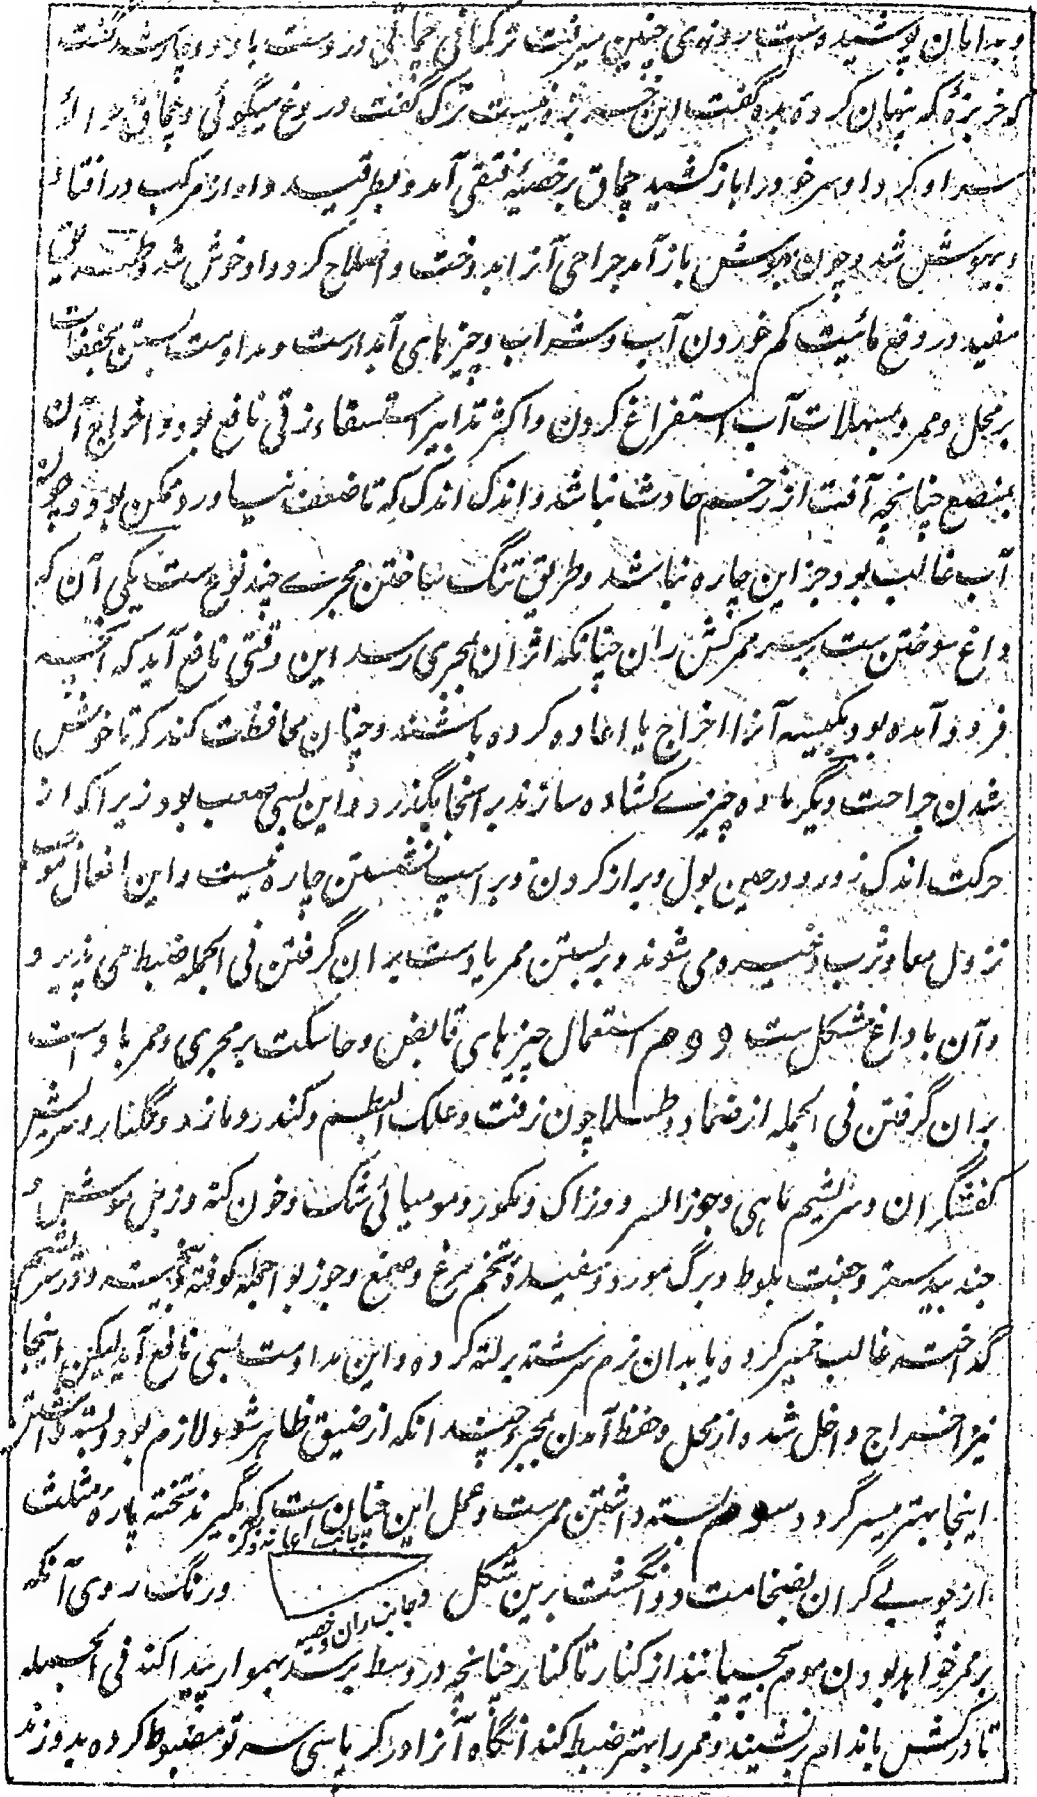 و بدامان پوشیده است روزی چنین میرفت ترکمانی چماقی در دست با او دوچار شد گفت
که خربزهٔ که پنهان کردهٔ بده گفت این خربزه نیست ترک گفت دروغ میگوئی و چماق حواله
سر او کرد او سر خود را باز کشید چماق بر خصیهٔ فتقی آمد و بطرقید و او از مرکب در افتاد
و بیهوش شد و چون بهوش باز آمد جراحی آنرا بدوخت و اصلاح کرد و او خوش شد و طریق
مفید در دفع مائیت کم خوردن آب و شراب و چیزهای آبدارست و مداومت بستن مجففات
بر محل و ممر و بمسهلات آب استفراغ کردن و اکثر تدابیر استسقاء زقی نافع بود و اخراج آن
بمبضع چنانچه آفت از زخم حادث نباشد و اندک اندک که تا ضعف نیاورد ممکن بود و چون
آب غالب بود جز این چاره نباشد و طریق تنگ ساختن مجری چند نوع ست یکی آن که
داغ سوختن ست بر سر ممر کش ران چنانکه اثر آن بمجری رسد این وقتی نافع آید که آنچه
فرود آمده بود بکیسه آنرا اخراج یا اعاده کرده باشند و چنان محافظت کنند که تا خوش
شدن جراحت دیگر ماده چیزی گشاده سازند بر آنجا نگذرد و این بسی صعب بود زیرا که از
حرکت اندک زور در حین بول و براز کردن و بر اسپ نشستن چاره نیست و این افعال
نزول معا و ثرب و غیره می شوند و بر بستن ممر یا دست بر آن گرفتن فی الجمله ضبط می پذیرد و
و آن با داغ مشکل ست دوم استعمال چیزهای قابض و حاسکت بر مجری و ممر با دست
بر آن گرفتن فی الجمله از ضماد و طلا چون زفت و علک البطم و کندر و مازو و گلنار و سریش
کفشگران و سریشم ماهی و جوز السرو و زاک و مومیائی و خون کنه و
جند بیدستر و جفت بلوط و برگ مورد و سفیدهٔ تخم مرغ و صمغ و جوز بوا جمله کوفته و بیخته و در سریشم
گداخته غالب خمیر کرده یا بدان نرم سرشته بر لته کرده و این مداومت بسی نافع آید لیکن اینجا
نیز اخراج داخل شده از محل و حفظ آمدن بمجری چند انکه اثر ضیق ظاهر شود لازم بود و بسته داشتن
اینجا بهتر میسر گردد سوم بسته داشتن ممرست و عمل این چنان ست که بگیرند تختهٔ پارهٔ مثلث
از چوبی گران بضخامت دو انگشت برین شکل و رنگ روی آنکه
بجانب عانه و کمر
و جانب ران و خصیه
بر ممر خواهد بودن موم بچسپانند از کنار تا کنار چنانچه در وسط بر سر هموار پیدا کند فی الجمله
تا در کش باندام بر نشیند و ممر را بهتر ضبط کند آنگاه آنرا در کرپاسی سه تو مضبوط کرده بدوزند